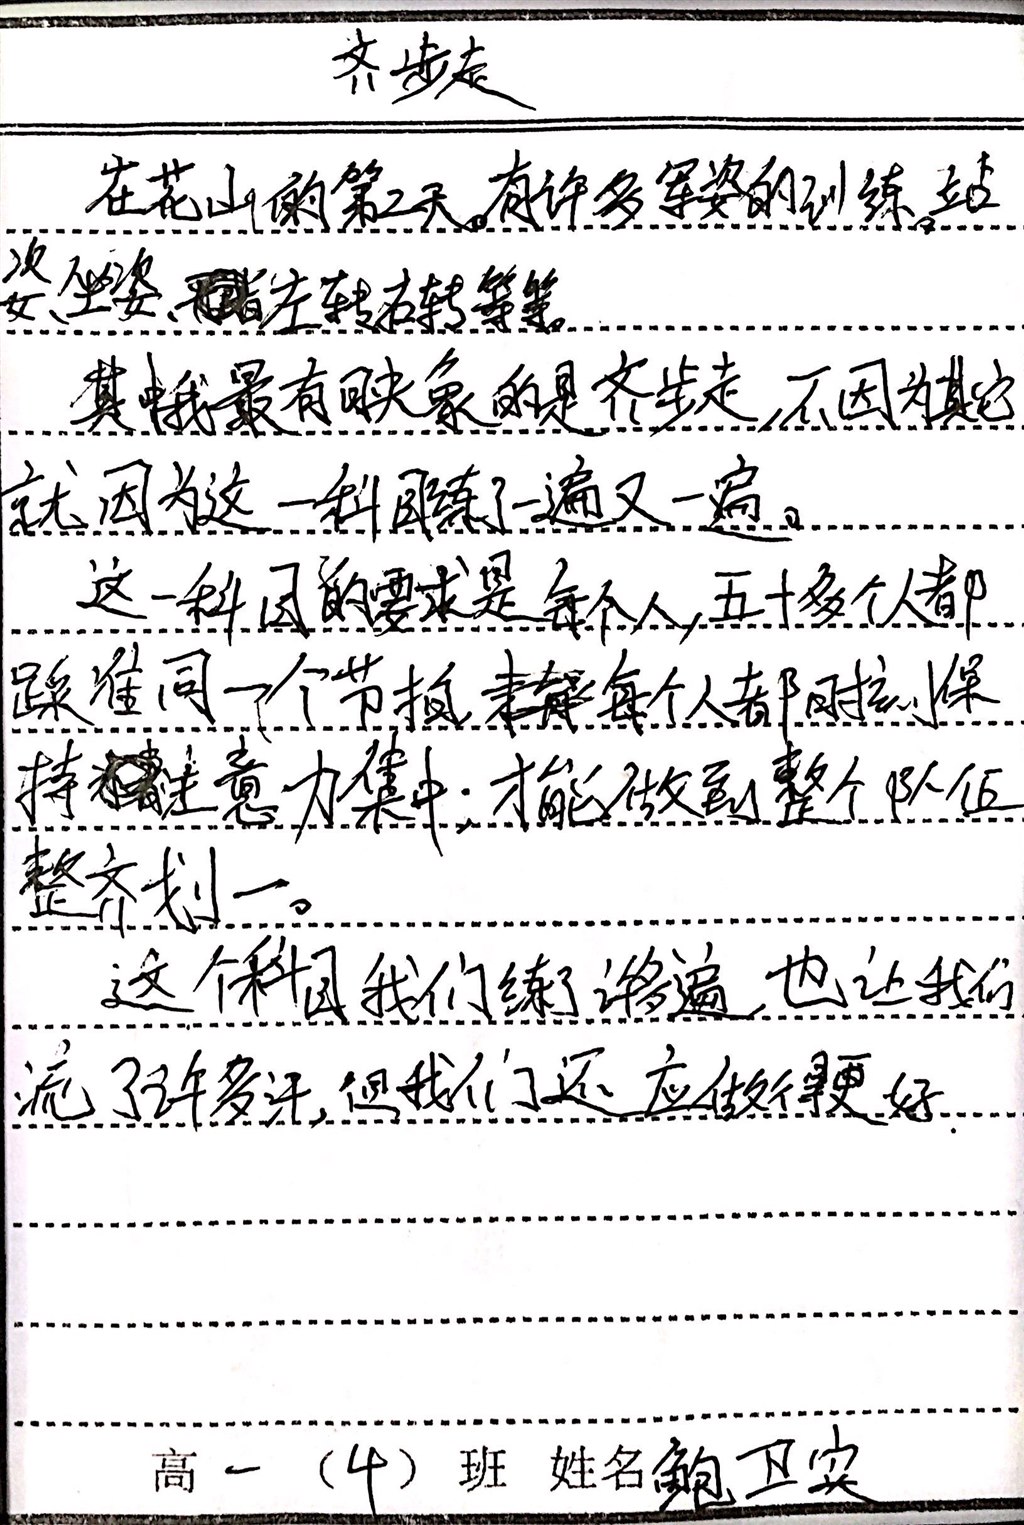 齐步走
在花山的第二天。有许多军姿的训练。站
姿、坐姿、左转右转等等。
其中我最有映象的是齐步走,不因为其它
就因为这一科目练了一遍又一遍。
这一科目的要求是每个人,五十多个人都
踩准同一个节拍,每个人都时刻保
持注意力集中;才能做到整个队伍
整齐划一。
这个科目我们练了许多遍,也让我们
流了许多汗,但我们还应做得更好.
高一(4)班 姓名鲍卫实